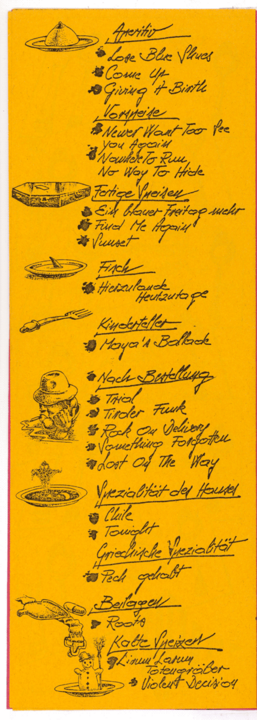 Aperitiv
Love Blue Shues
Come Up
Giving A Birth
Vorspeise
Never Want Too See
You Again
Nowhere To Run,
No Way To Hide
Fertige Speisen
Ein blauer Freitag mehr
Find Me Again
Sunset
Fisch
Hierzulande
Heutzutage
Kinderteller
Maya'n Ballade
Nach Bestellung
Trial
Tinder Funk
Rock On Delivery
Something Forgotten
Lost On The Way
Spezialität des Hauses
Chile
Tonight
Griechische Spezialität
Pech gehabt
Beilagen
Roots
Kalte Speisen
Totengräber
Violent Decision